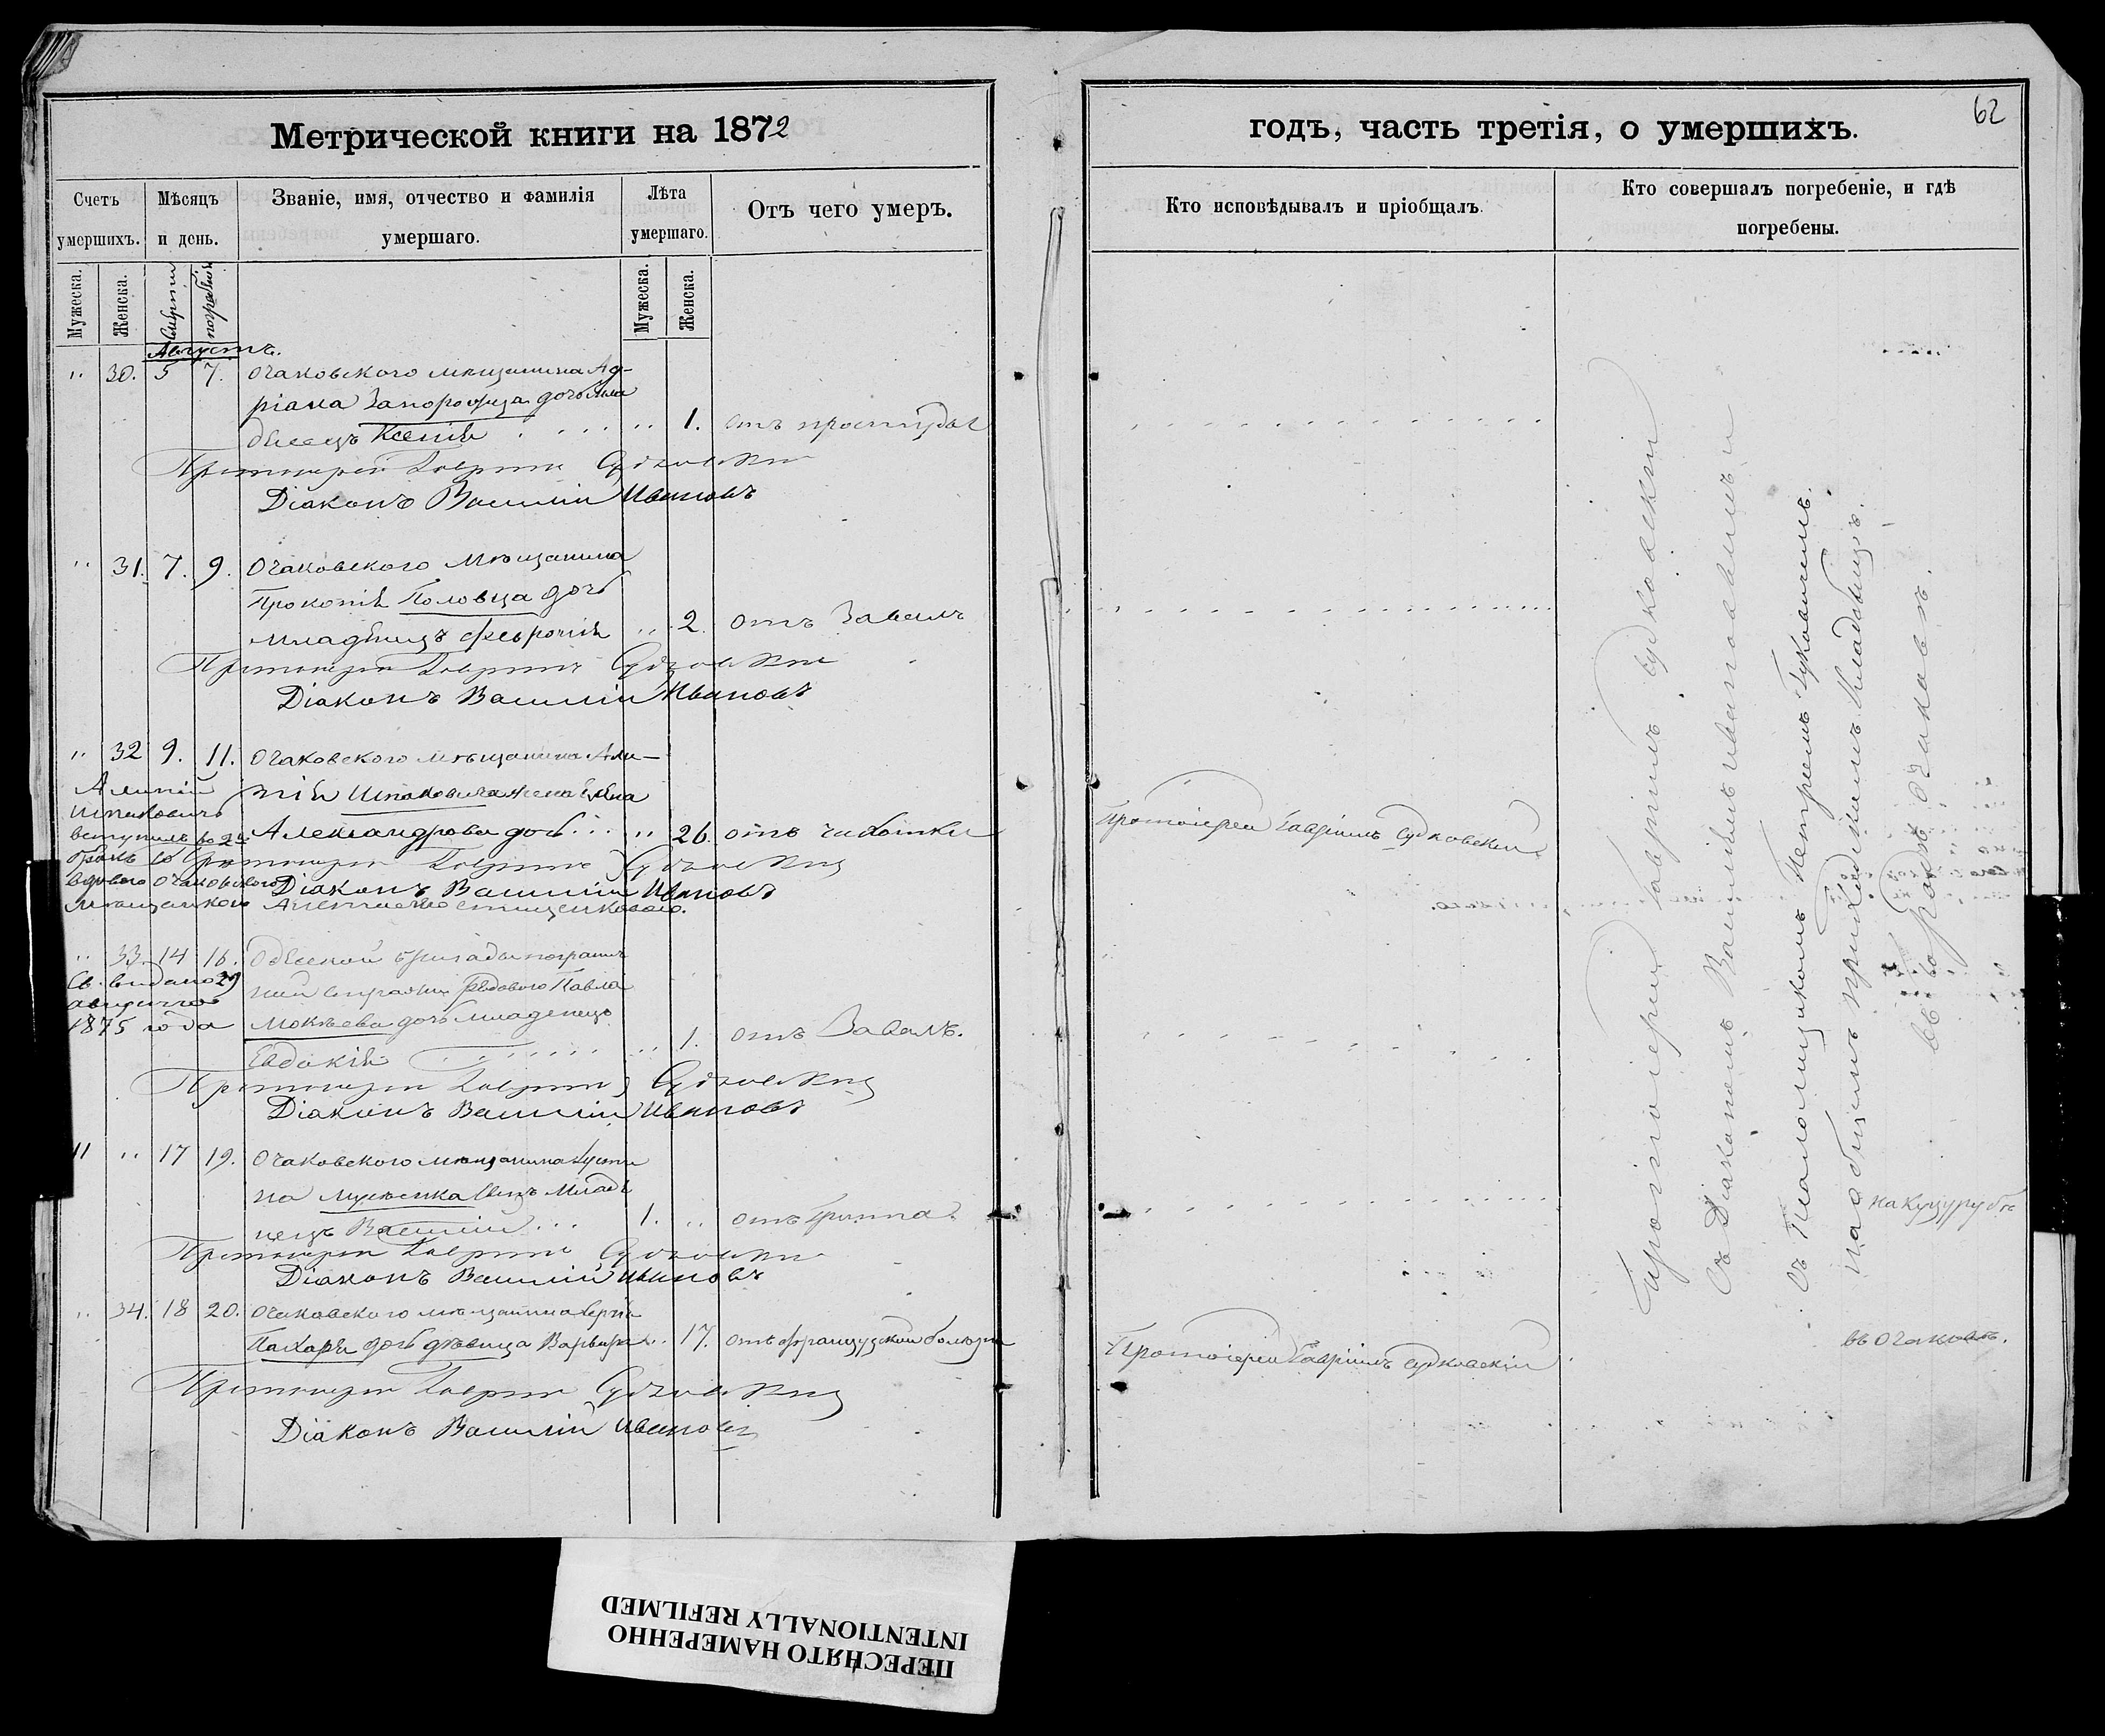 Метрической книги на 1872
годъ, часть третія, о умершихъ.
62
Счетъ умершихъ.
Мѣсяцъ и день.
Званіе, имя, отчество и фамилія умершаго.
Лѣта умершаго.
Отъ чего умеръ.
Кто исповѣдывалъ и пріобщалъ.
Кто совершалъ погребеніе, и гдѣ погребены.
Мужеска.
Женска.
смерти
погребенія
Мужеска.
Женска.
Августъ.
" 30. 5 7. Очаковского мѣщанина Ад-
ріана Запорожца дочь мла
денецъ Ксенія " 1. отъ простуды
Протоіерей Гавріилъ Судковскій
Діаконъ Василій Ивановъ
" 31. 7. 9. Очаковского мѣщанина
Прокопія Половца дочь
младенецъ Февронія " 2. отъ Завалъ
Протоіерей Гавріилъ Судковскій
Діаконъ Василій Ивановъ
" 32 9. 11. Очаковского мѣщанина Али-
пія Шпаковича жена
Александрова дочь " 26. отъ чахотки
Протоіерей Гавріилъ Судковскій
Протоіерей Гавріилъ Судковскій
Діаконъ Василій Ивановъ
Алипій
Шпаковичъ
вступилъ во 2й
бракъ со
вдовою очаковскою
мѣщанкою
" 33. 14 16. Одесской бригады погранич
ной стражи рядового Павла
Мокѣева дочь младенецъ
Евдокія " 1. отъ Завалъ.
Св. выдано 29
августа
1875 года
Протоіерей Гавріилъ Судковскій
Діаконъ Василій Ивановъ
11 " 17 19. Очаковского мѣщанина Усти
на сынъ Младе
нецъ Василій 1. " отъ Гриппа.
на Куцурубѣ
Протоіерей Гавріилъ Судковскій
Діаконъ Василій Ивановъ
" 34. 18 20. Очаковского мѣщанина Сергія
Пахаря дочь дѣвица Варвара " 17. отъ французской болѣзни
Протоіерей Гавріилъ Судковскій
въ Очаковѣ.
Протоіерей Гавріилъ Судковскій
Діаконъ Василій Ивановъ
Протоіерей Гавріилъ Судковскій
съ Діакономъ Василіемъ Ивановымъ и
съ Псаломщикомъ Петромъ
на общемъ приходскомъ кладбищѣ.
въ городѣ Очаковѣ.
ПЕРЕСНЯТО НАМЕРЕННО
INTENTIONALLY REFILMED